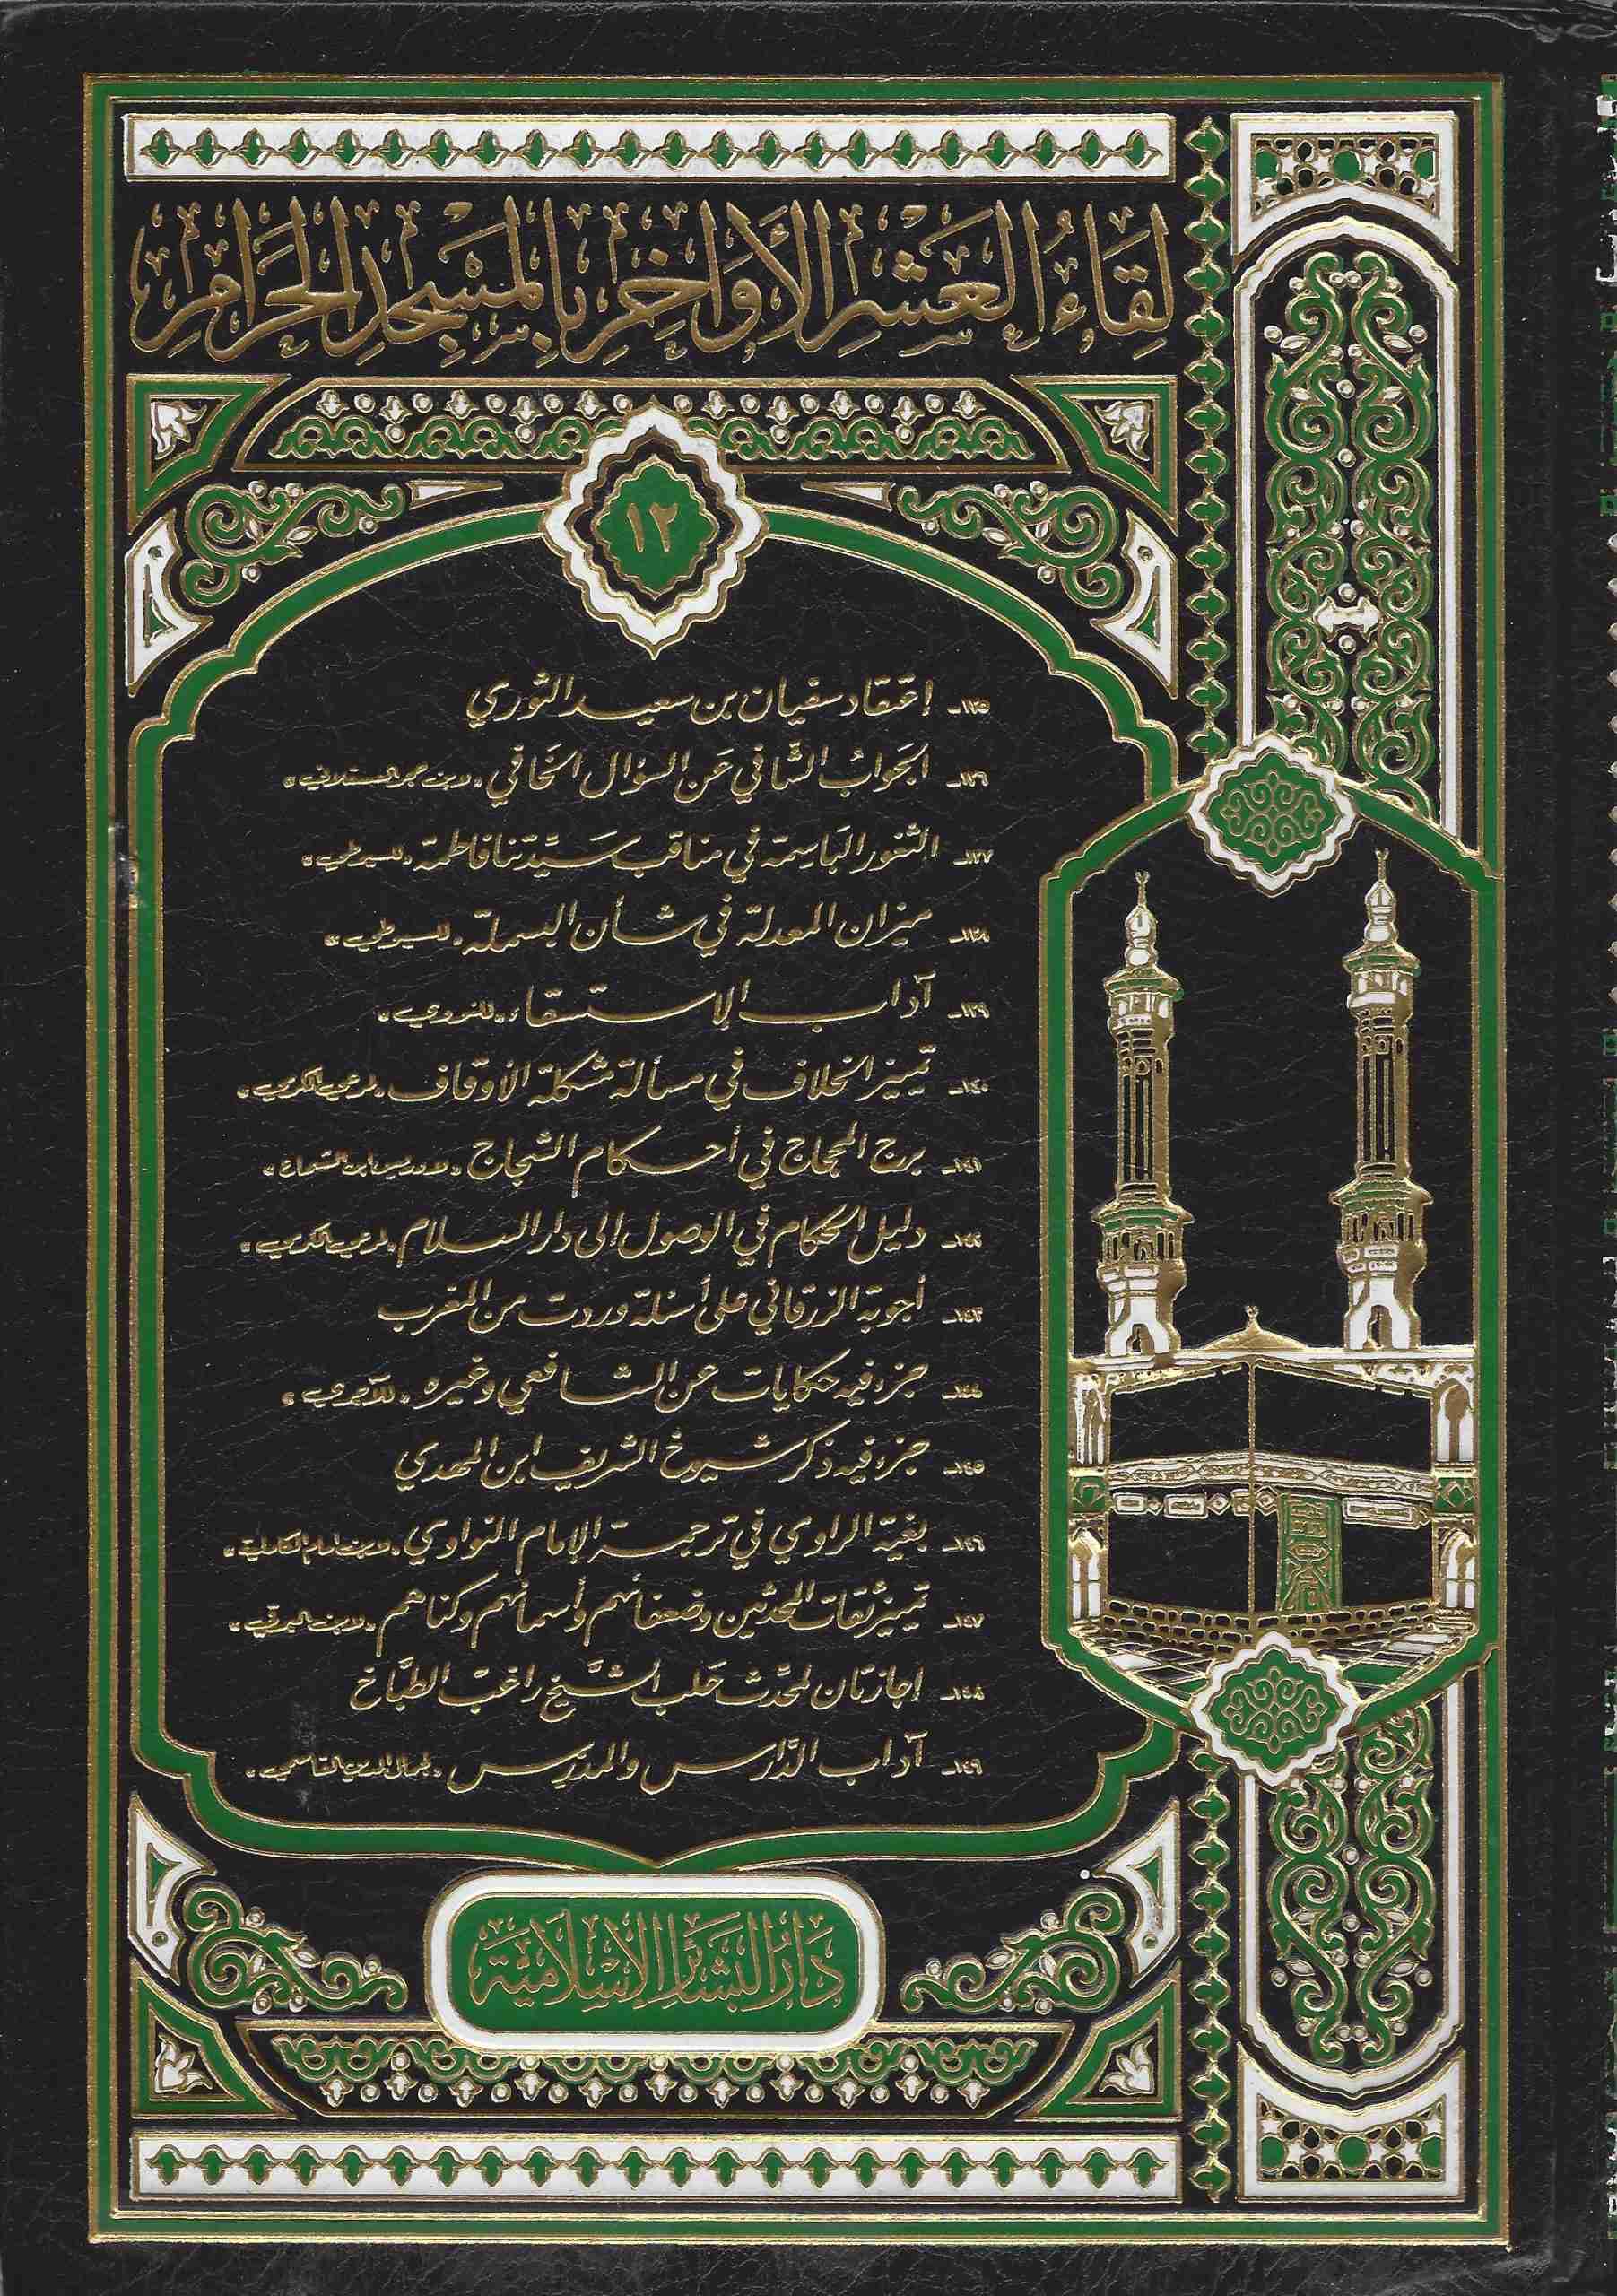 لِقَاءُ العَشْرِ الأَوَاخِرِ بِالمَسْجِدِ الحَرَامِ
١٢
١٣٥ـ اعتقاد سفيان بن سعيد الثوري
١٣٦ـ الجَوابُ الشَّافي عَن السؤال الخَافي «لابن حجر العسقلاني»
١٣٧ـ الثغور البَاسِمة في مناقب سَيِّدتنا فاطمة «للسيوطي»
١٣٨ـ ميزان المعدلة في شأن البسملة «للسيوطي»
١٣٩ـ آداب الاستسقاء «للنووي»
١٤٠ـ تمييز الخلاف في مسألة مشكلة الأوقاف «لمرعي الكرمي»
١٤١ـ برج المحجاج في أحكام الشجاج «لادريس ابن الشماع»
١٤٢ـ دليل الحكام في الوصول الى دار السلام «لمرعي الكرمي»
١٤٣ـ أجوبة الزرقاني على أسئلة وردت من المغرب
١٤٤ـ جزء فيه حكايات عن الشافعي وغيره «للآجري»
١٤٥ـ جزء فيه ذكر شيوخ الشريف ابن المهدي
١٤٦ـ بغية الراوي في ترجمة الإمام النواوي «لابن إمام الكاملية»
١٤٧ـ تمييز ثقات المحدثين وضعفائهم وأسمائهم وكناهم «لابن البرقي»
١٤٨ـ إجازتان لمحدِّث حَلب الشَّيخ راغب الطبَّاخ
١٤٩ـ آداب الدَّارس والمدَرِّس «لجمال الدين القاسمي»
دَارُ البَشَائِرِ الإِسْلَامِيَّة